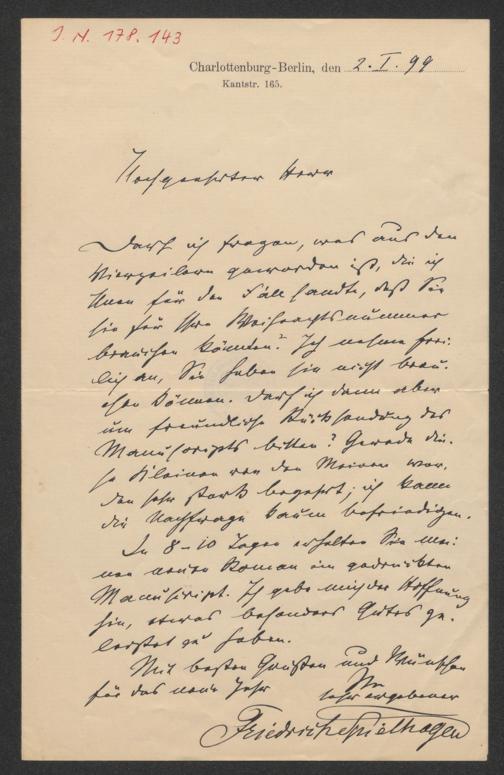 J. N. 178.143
Charlottenburg-Berlin, den 2. I. 99
Kantstr. 165.
Hochgeehrter Herr
Darf ich fragen, was aus den
Vierzeilern geworden ist, die ich
Ihnen für den Fall sandte, daß Sie
sie für Ihre Weihnachtsnummer
brauchen könnten? Ich nehme frei-
lich an, Sie haben sie nicht brau-
chen können. Darf ich dann aber
um freundliche Rücksendung des
Manuscripts bitten? Gerade die-
se Kleinen von den Meinen wer-
den sehr stark begehrt; ich kann
die Nachfrage kaum befriedigen.
In 8-10 Tagen erhalten Sie mei-
nen neuen Roman im gedruckten
Manuscript. Ich gebe mich der Hoffnung
hin, etwas besonders Gutes ge-
leistet zu haben.
Mit besten Grüßen und Wünschen
für das neue Jahr Ihr
sehr ergebener
Friedrich Spielhagen